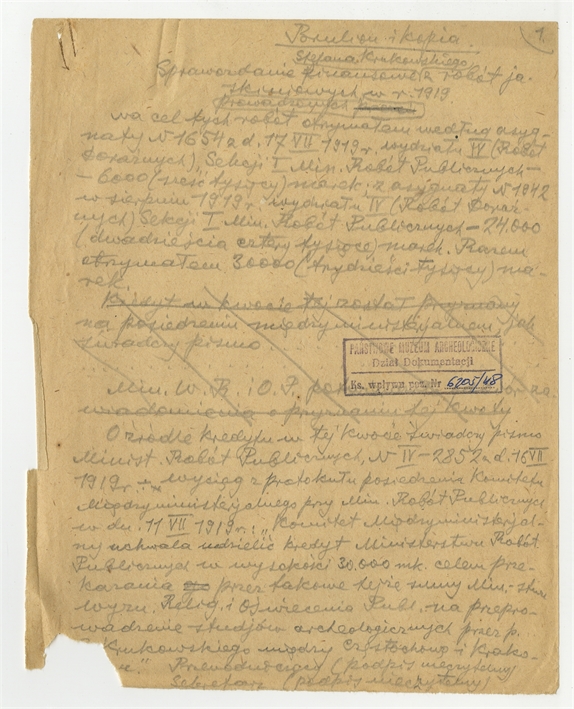 1.
Brulion i kopia
Stefana Krukowskiego
Sprawozdanie finansowe z robót ja-
skiniowych w r. 1919
prowadzonych
Na cel tych robót otrzymałem według asyg-
naty N 1654 z d. 17 VII 1919 r. wydziału IV (Robót
Doraźnych), Sekcji I Min. Robót Publicznych –
– 6000 (sześć tysięcy) marek; z asygnaty N 1942
w sierpniu 1919 r. wydziału IV (Robót Doraź-
nych) Sekcji I Min. Robót Publicznych – 24.000
(dwadzieścia cztery tysiące) marek. Razem
otrzymałem 30000 (trzydzieści tysięcy) ma-
rek.
Kredyt w kwocie tej został przyznany
na posiedzeniu międzyministerjalnem, jak
świadczy pismo
PAŃSTWOWE MUZEUM ARCHEOLOGICZNE
Dział Dokumentacji
Ks. wpływu poz. Nr 6205/48
Min. W. R. i O. P. za-
wiadomienie o przyznaniu tej kwoty
O źródle kredytu w tej kwocie świadczy pismo
Minist. Robót Publicznych, N IV – 2852 z d. 16 VII
1919 r. wyciąg z protokułu posiedzenia Komitetu
Międzyministerjalnego przy Min. Robót Publicznych
w dn. 11 VII 1919 r.: „Komitet Międzyministerjal-
ny uchwala udzielić kredyt Ministerstwu Robót
Publicznych w wysokości 30.000 mk. celem prze-
kazania przez takowe tejże sumy Min.-stwu
Wyzn. Relig. i Oświecenia Publ. na przepro-
wadzenie studjów archeologicznych przez p.
Krukowskiego między Częstochową i Krako-
wem." Przewodniczący (podpis nieczytelny)
Sekretarz (podpis nieczytelny)